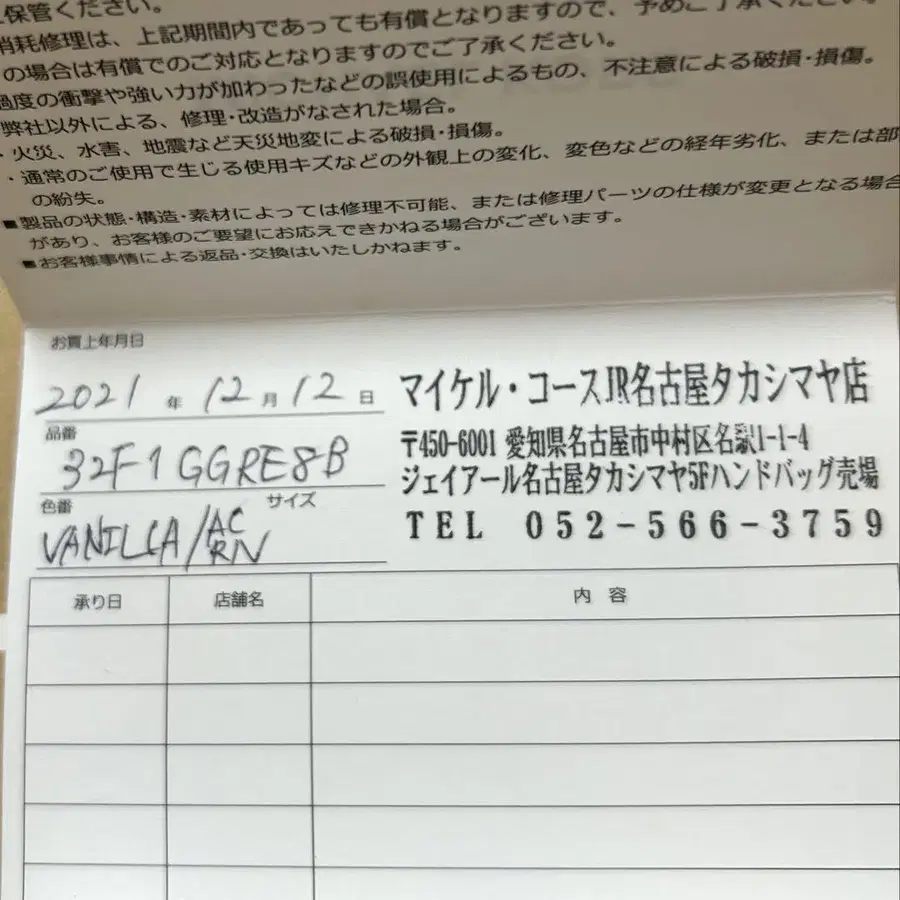 保管ください。
消耗修理は、上記期間内であっても有償となりますので、予めご了承ください。
の場合は有償でのご対応となりますのでご了承ください。
過度の衝撃や強い力が加わったなどの誤使用によるもの、不注意による破損・損傷。
弊社以外による、修理・改造がなされた場合。
・火災、水害、地震など天災地変による破損・損傷。
・通常のご使用で生じる使用キズなどの外観上の変化、変色などの経年劣化、または部
の紛失。
■製品の状態・構造・素材によっては修理不可能、または修理パーツの仕様が変更となる場合
があり、お客様のご要望にお応えできかねる場合がございます。
■お客様事情による返品・交換はいたしかねます。
お買上年月日
2021 年 12 月 12 日
品番
32F1GGRE8B
色番 サイズ
VANILLA/AC
RN
マイケル・コースJR名古屋タカシマヤ店
〒450-6001 愛知県名古屋市中村区名駅1-1-4
ジェイアール名古屋タカシマヤ5Fハンドバッグ売場
TEL 052-566-3759
承り日 店舗名 内容